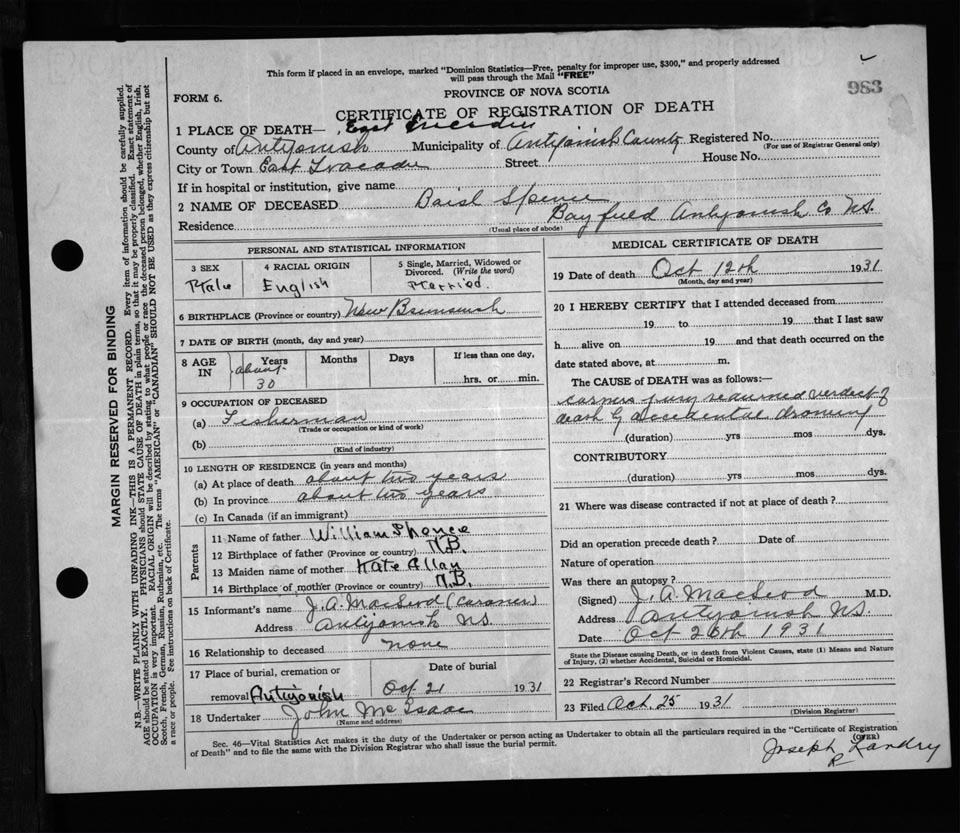 This form if placed in an envelope, marked "Dominion Statistics—Free, penalty for improper use, $300," and properly addressed
will pass through the Mail "FREE"
983
FORM 6.
PROVINCE OF NOVA SCOTIA
CERTIFICATE OF REGISTRATION OF DEATH
1 PLACE OF DEATH— East Tracadie
County of Antigonish Municipality of Antigonish County Registered No.
(For use of Registrar General only)
City or Town East Tracadie Street House No.
If in hospital or institution, give name
2 NAME OF DECEASED Basil Spence
Residence Bayfield Antigonish Co N.S.
(Usual place of abode)
PERSONAL AND STATISTICAL INFORMATION
3 SEX 4 RACIAL ORIGIN 5 Single, Married, Widowed or
Divorced. (Write the word)
Male English Married.
6 BIRTHPLACE (Province or country) New Brunswick
7 DATE OF BIRTH (month, day and year)
8 AGE IN Years Months Days If less than one day,
about 30 hrs. or min.
9 OCCUPATION OF DECEASED
(a) Fisherman
(Trade or occupation or kind of work)
(b)
(Kind of industry)
10 LENGTH OF RESIDENCE (in years and months)
(a) At place of death about two years
(b) In province about two years
(c) In Canada (if an immigrant)
Parents
11 Name of father William Spence
12 Birthplace of father (Province or country) N.B.
13 Maiden name of mother Kate Allan
14 Birthplace of mother (Province or country) N.B.
15 Informant's name J. A. MacLeod (Coroner)
Address Antigonish N.S.
16 Relationship to deceased none
17 Place of burial, cremation or Date of burial
removal Antigonish Oct 21 1931
18 Undertaker John McIsaac
(Name and address)
MEDICAL CERTIFICATE OF DEATH
19 Date of death Oct 12th 1931
(Month, day and year)
20 I HEREBY CERTIFY that I attended deceased from
19 to 19 that I last saw
h alive on 19 and that death occurred on the
date stated above, at m.
The CAUSE of DEATH was as follows:—
corners jury returned verdict of
death by accidental drowning
(duration) yrs mos dys.
CONTRIBUTORY
(duration) yrs mos dys.
21 Where was disease contracted if not at place of death?
Did an operation precede death? Date of
Nature of operation
Was there an autopsy?
(Signed) J. A. MacLeod M.D.
Address Antigonish N.S.
Date Oct 20th 1931
State the Disease causing Death, or in death from Violent Causes, state (1) Means and Nature
of Injury, (2) whether Accidental, Suicidal or Homicidal.
22 Registrar's Record Number
23 Filed Oct. 25 1931
(Division Registrar)
Sec. 46—Vital Statistics Act makes it the duty of the Undertaker or person acting as Undertaker to obtain all the particulars required in the "Certificate of Registration
of Death" and to file the same with the Division Registrar who shall issue the burial permit.
(OVER)
Joseph Landry
R
MARGIN RESERVED FOR BINDING
N.B.—WRITE PLAINLY WITH UNFADING INK—THIS IS A PERMANENT RECORD. Every item of information should be carefully supplied.
AGE should be stated EXACTLY. PHYSICIANS should STATE CAUSE OF DEATH in plain terms, so that it may be properly classified. Exact statement of
OCCUPATION is very important. RACIAL ORIGIN will be described by stating to what people or race the deceased person belonged, whether English, Irish,
Scotch, French, German, Russian, Ruthenian, etc. The terms "AMERICAN" or "CANADIAN" SHOULD NOT BE USED as they express citizenship but not
a race or people. See instructions on back of Certificate.